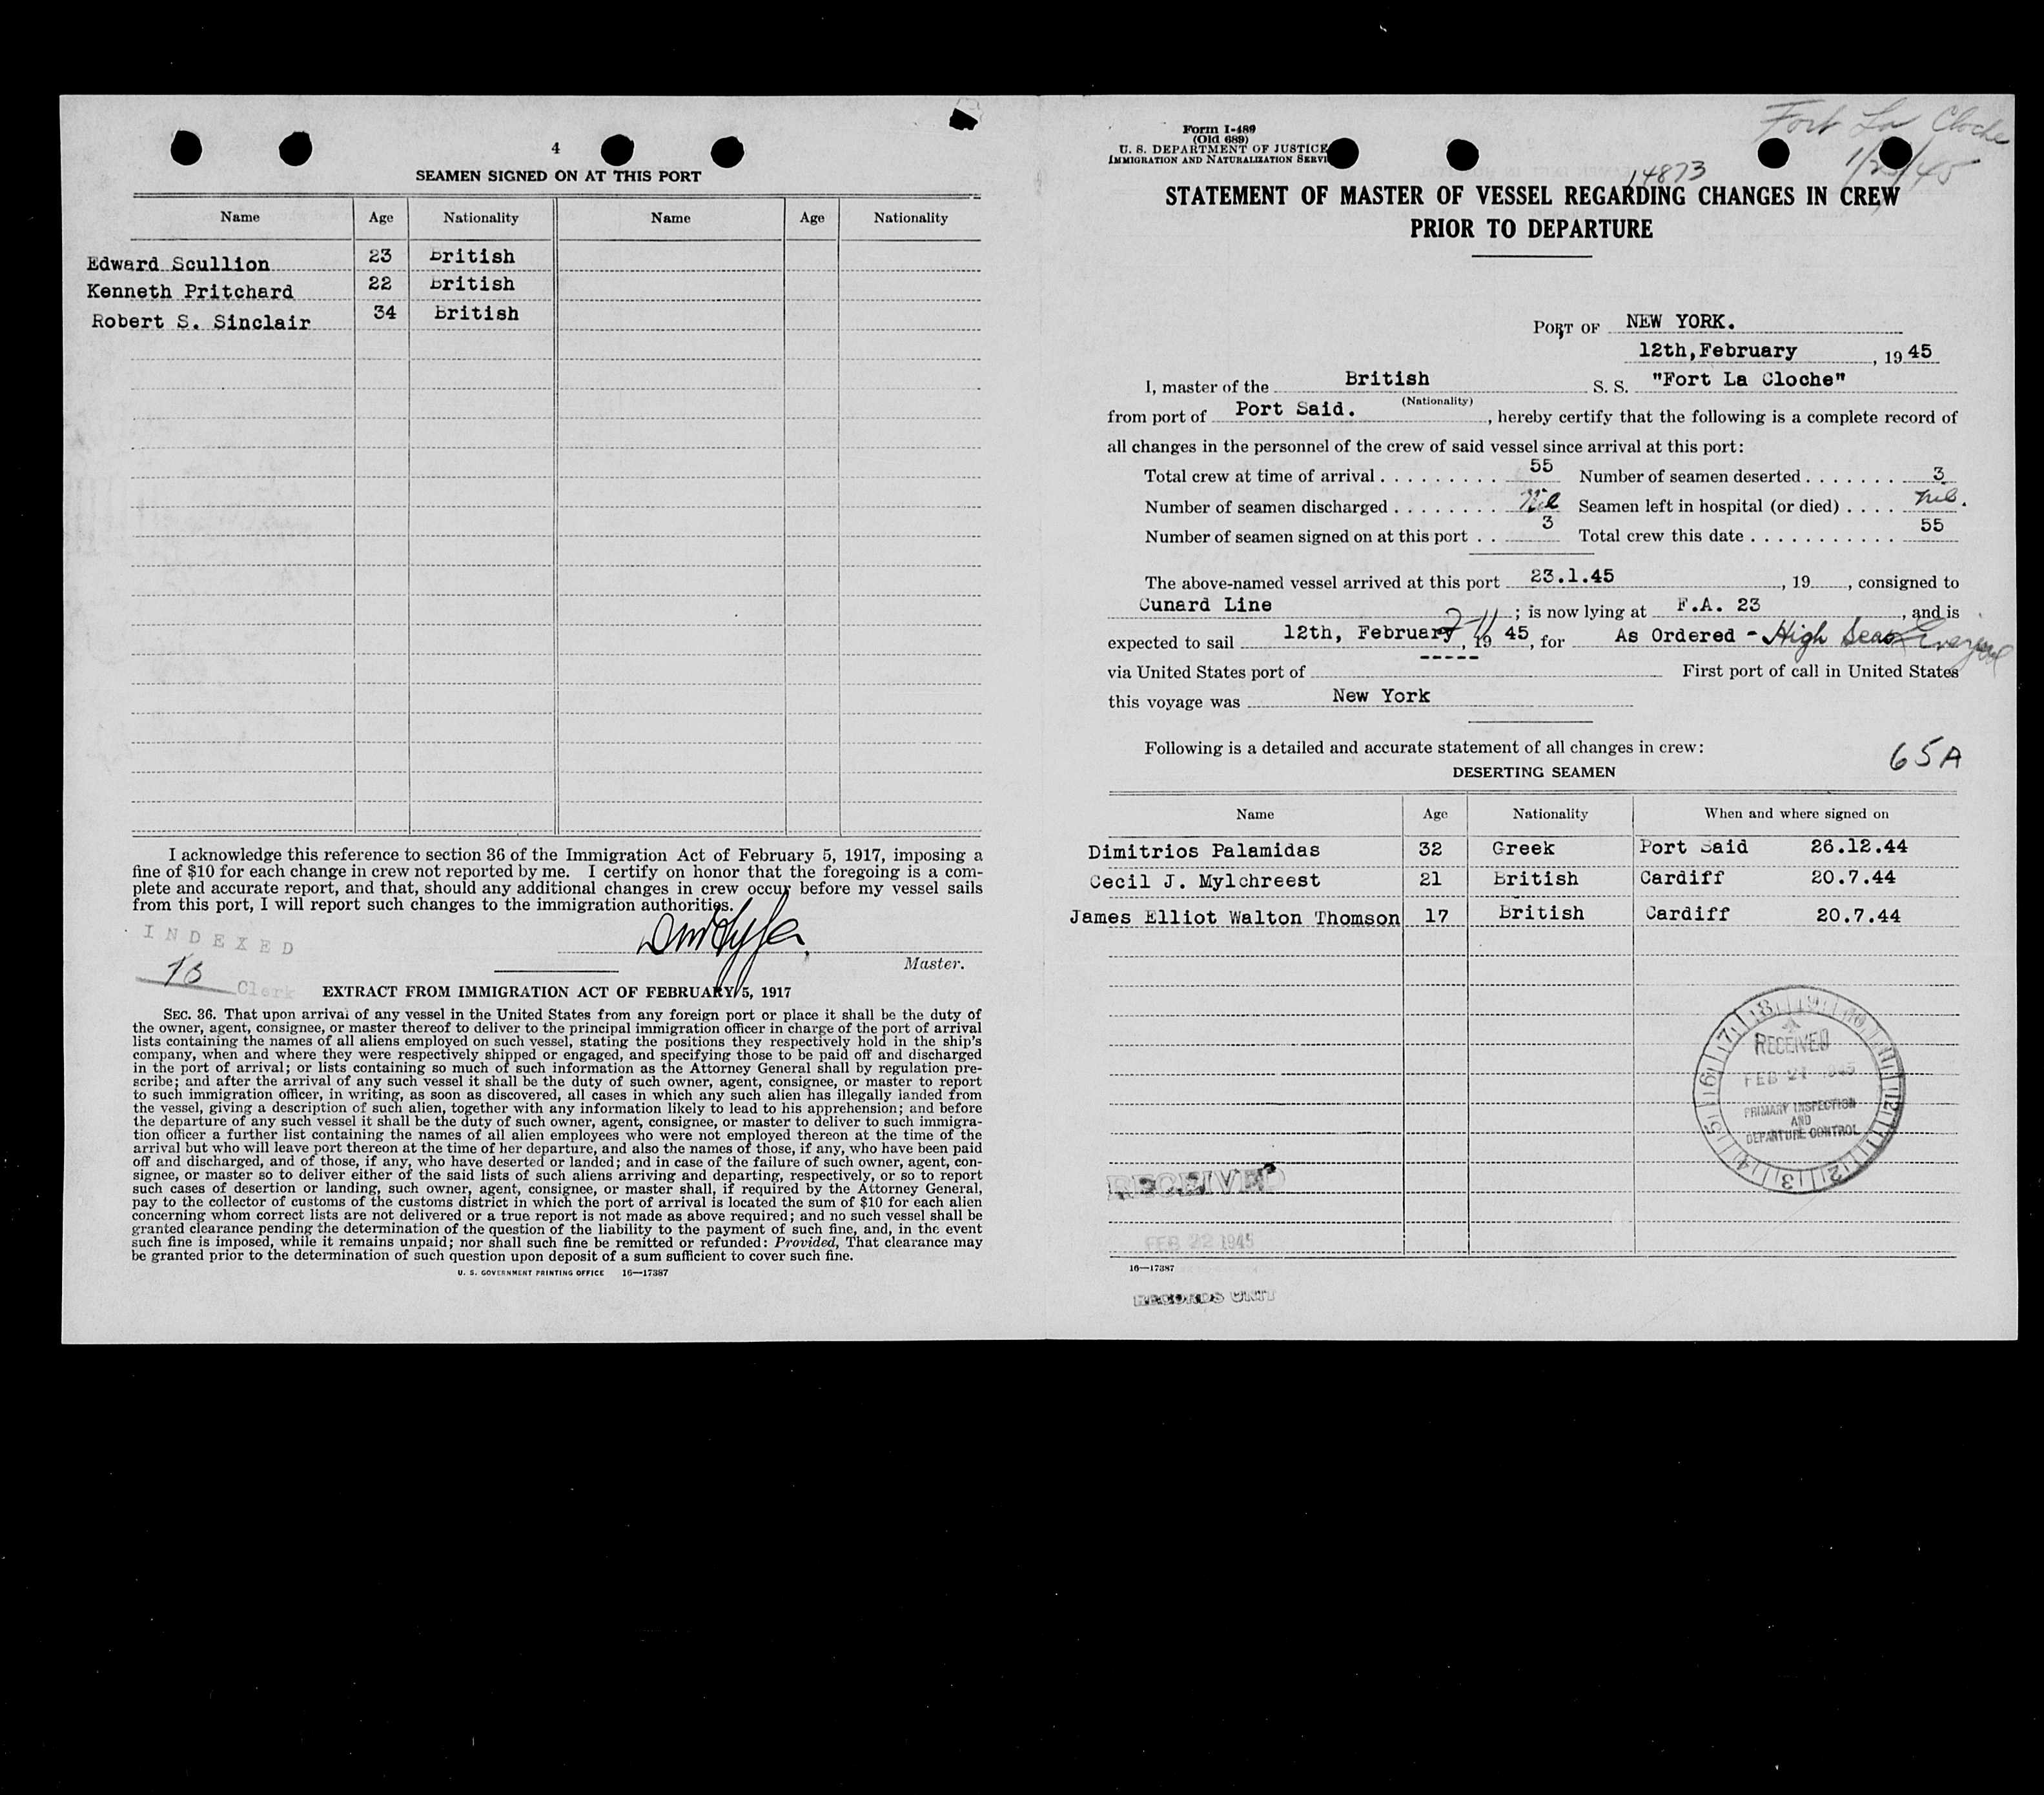 4
SEAMEN SIGNED ON AT THIS PORT
Name Age Nationality Name Age Nationality
Edward Scullion 23 British
Kenneth Pritchard 22 British
Robert S. Sinclair 34 British
I acknowledge this reference to section 36 of the Immigration Act of February 5, 1917, imposing a
fine of $10 for each change in crew not reported by me. I certify on honor that the foregoing is a com-
plete and accurate report, and that, should any additional changes in crew occur before my vessel sails
from this port, I will report such changes to the immigration authorities.
INDEXED
Master.
Clerk
EXTRACT FROM IMMIGRATION ACT OF FEBRUARY 5, 1917
SEC. 36. That upon arrival of any vessel in the United States from any foreign port or place it shall be the duty of
the owner, agent, consignee, or master thereof to deliver to the principal immigration officer in charge of the port of arrival
lists containing the names of all aliens employed on such vessel, stating the positions they respectively hold in the ship's
company, when and where they were respectively shipped or engaged, and specifying those to be paid off and discharged
in the port of arrival; or lists containing so much of such information as the Attorney General shall by regulation pre-
scribe; and after the arrival of any such vessel it shall be the duty of such owner, agent, consignee, or master to report
to such immigration officer, in writing, as soon as discovered, all cases in which any such alien has illegally landed from
the vessel, giving a description of such alien, together with any information likely to lead to his apprehension; and before
the departure of any such vessel it shall be the duty of such owner, agent, consignee, or master to deliver to such immigra-
tion officer a further list containing the names of all alien employees who were not employed thereon at the time of the
arrival but who will leave port thereon at the time of her departure, and also the names of those, if any, who have been paid
off and discharged, and of those, if any, who have deserted or landed; and in case of the failure of such owner, agent, con-
signee, or master so to deliver either of the said lists of such aliens arriving and departing, respectively, or so to report
such cases of desertion or landing, such owner, agent, consignee, or master shall, if required by the Attorney General,
pay to the collector of customs of the customs district in which the port of arrival is located the sum of $10 for each alien
concerning whom correct lists are not delivered or a true report is not made as above required; and no such vessel shall be
granted clearance pending the determination of the question of the liability to the payment of such fine, and, in the event
such fine is imposed, while it remains unpaid; nor shall such fine be remitted or refunded: Provided, That clearance may
be granted prior to the determination of such question upon deposit of a sum sufficient to cover such fine.
U. S. GOVERNMENT PRINTING OFFICE 16—17387
Fort La Cloche
Form I-489
(Old 689)
U. S. DEPARTMENT OF JUSTICE
IMMIGRATION AND NATURALIZATION SERVI
14873
STATEMENT OF MASTER OF VESSEL REGARDING CHANGES IN CREW
PRIOR TO DEPARTURE
PORT OF NEW YORK.
12th, February, 1945
I, master of the British S. S. "Fort La Cloche"
(Nationality)
from port of Port Said., hereby certify that the following is a complete record of
all changes in the personnel of the crew of said vessel since arrival at this port:
Total crew at time of arrival . . . . . . . . . 55 Number of seamen deserted . . . . . . . 3
Number of seamen discharged . . . . . . . . Nil Seamen left in hospital (or died) . . . . Nil.
Number of seamen signed on at this port . . 3 Total crew this date . . . . . . . . . . . 55
The above-named vessel arrived at this port 23.1.45, 19, consigned to
Cunard Line; is now lying at F.A. 23, and is
expected to sail 12th, February, 1945, for As Ordered - High Seas
via United States port of First port of call in United States
this voyage was New York
Following is a detailed and accurate statement of all changes in crew:
65A
DESERTING SEAMEN
Name Age Nationality When and where signed on
Dimitrios Palamidas 32 Greek Port Said 26.12.44
Cecil J. Mylchreest 21 British Cardiff 20.7.44
James Elliot Walton Thomson 17 British Cardiff 20.7.44
RECEIVED
FEB 21 1945
PRIMARY INSPECTION
AND
DEPARTURE CONTROL
RECEIVED
FEB 22 1945
16—17387
RECORDS UNIT